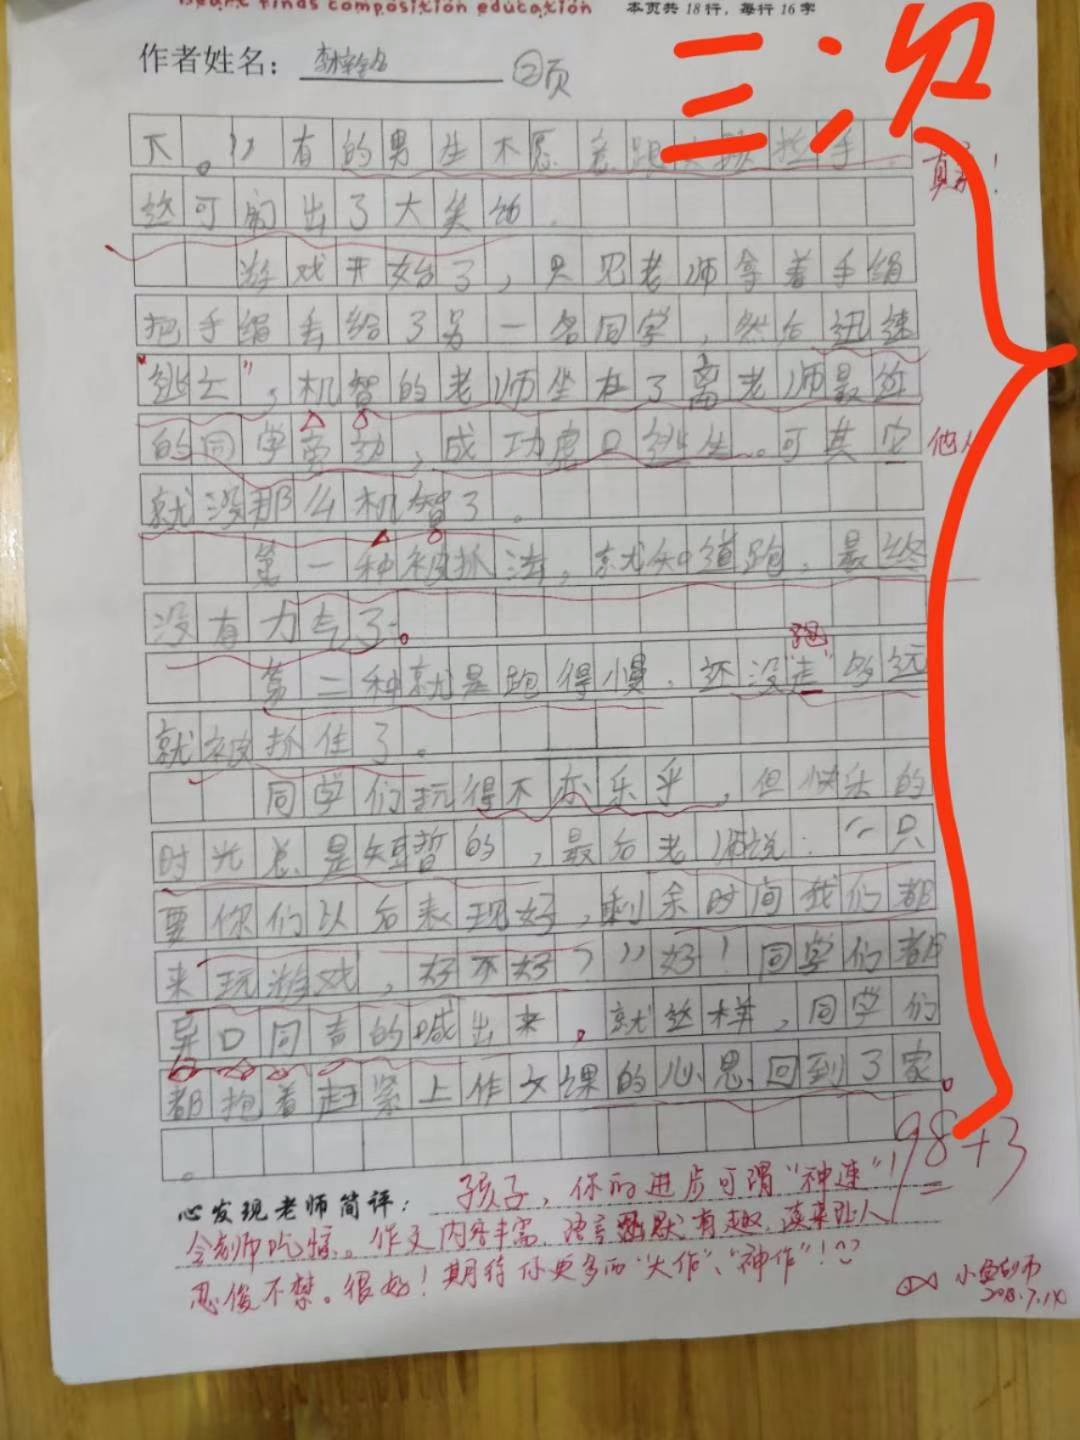 Heart finds composition education 本页共18行，每行16字
三次
作者姓名： ②页
下。”有的男生不愿意跟女孩拉手，
真实！
这可闹出了大笑话。
游戏开始了，只见老师拿着手绢
把手绢丢给了另一名同学，然后迅速
“逃亡”，机智的老师坐在了离老师最近
的同学旁边，成功虎口逃生。可其它
他人
就没那么机智了。
第一种被抓法，就知道跑，最终
没有力气了。
跑
第二种就是跑得慢，还没“走”多远
就被抓住了。
同学们玩得不亦乐乎，但快乐的
时光总是短暂的，最后老师说：“只
要你们以后表现好，剩余时间我们都
来玩游戏，好不好？”好！同学们都
异口同声的喊出来。就这样，同学们
都抱着赶紧上作文课的心思回到了家
。
98+3
心发现老师简评：孩子，你的进步可谓“神速”！
令老师吃惊。作文内容丰富，语言幽默有趣，读来让人
忍俊不禁。很好！期待你更多的“大作”、“神作”！
小鱼老师